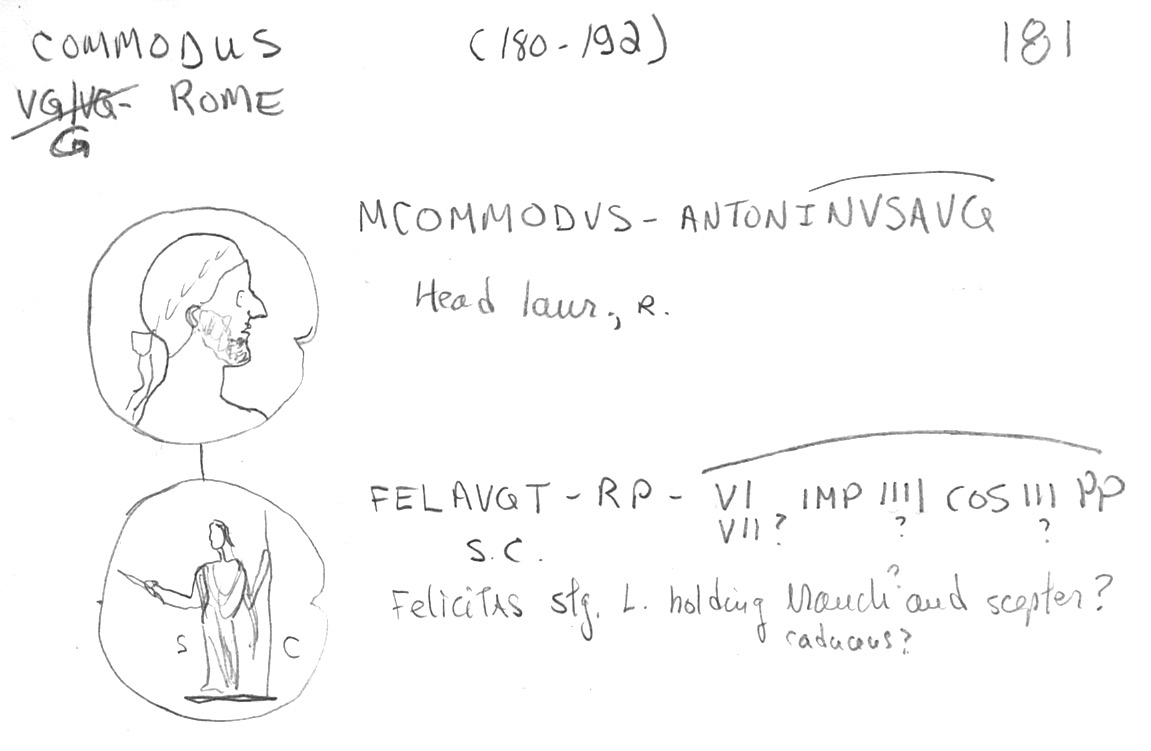 COMMODUS (180-192) 181
VG/VG- ROME
G
MCOMMODVS - ANTONINVSAVG
Head laur., R.
FELAVGT - RP - VI IMP IIII COS III PP
VII? ? ?
S.C.
Felicitas stg. L. holding ? and scepter?
caduceus?
S C